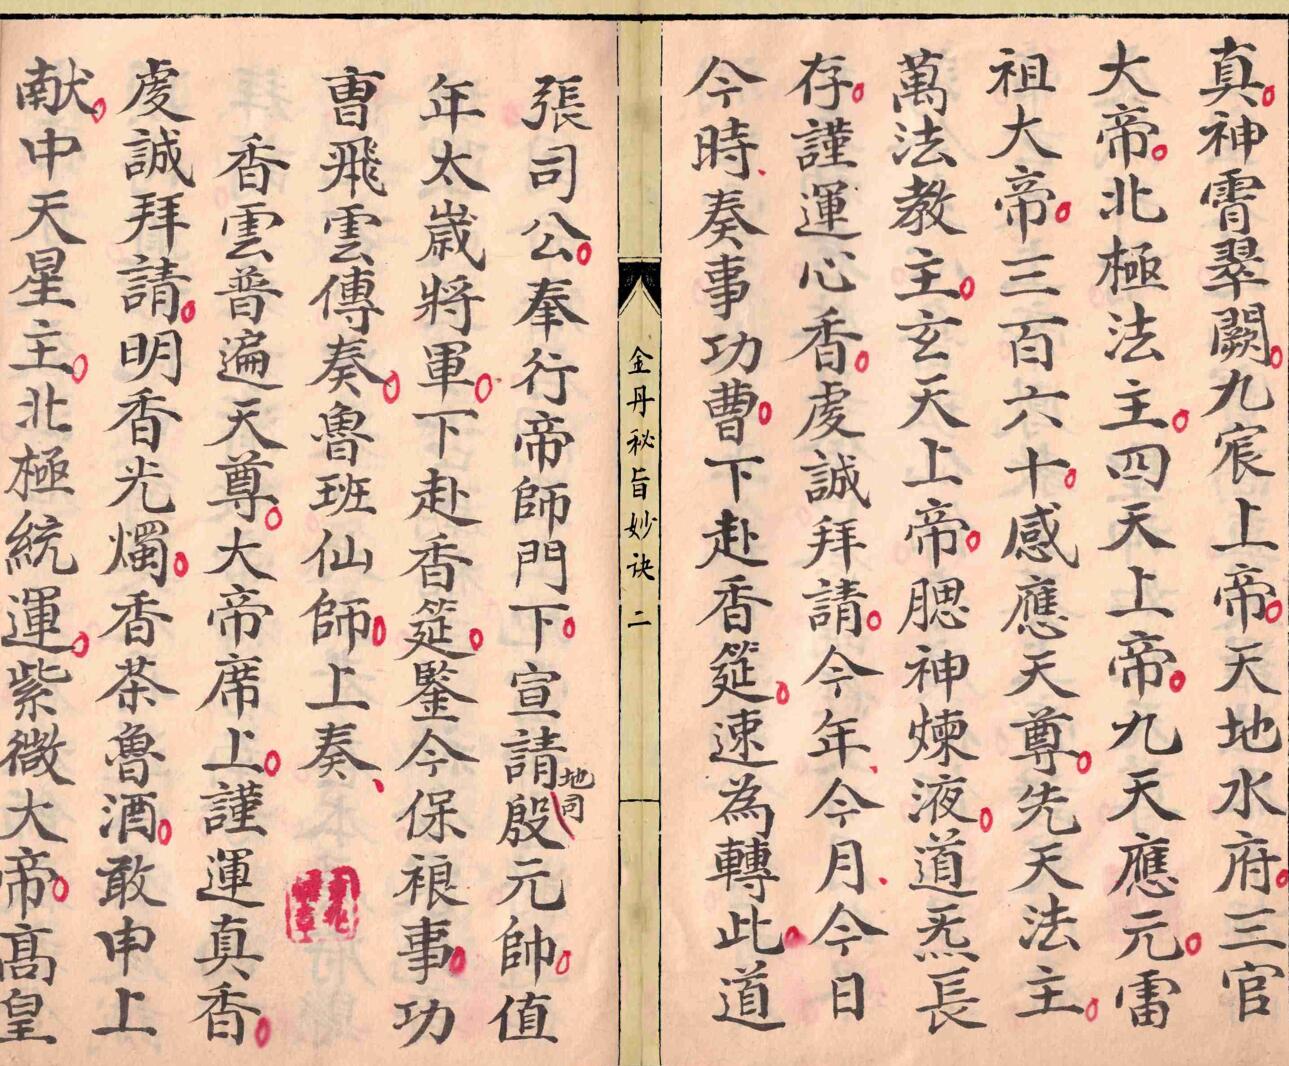 真神霄翠闕九宸上帝天地水府三官
大帝北極法主四天上帝九天應元雷
祖大帝三百六十感應天尊先天法主
萬法教主玄天上帝腮神煉液道炁長
存謹運心香虔誠拜請今年今月今日
今時奏事功曹下赴香筵速為轉此道
金丹秘旨妙诀 二
張司公奉行帝師門下宣請殷元帥值
地司
年太歲將軍下赴香筵鑒今保禳事功
曹飛雲傳奏魯班仙師上奏
香雲普遍天尊大帝席上謹運真香
虔誠拜請明香光燭香茶魯酒敢申上
献中天星主北極統運紫微大帝高皇